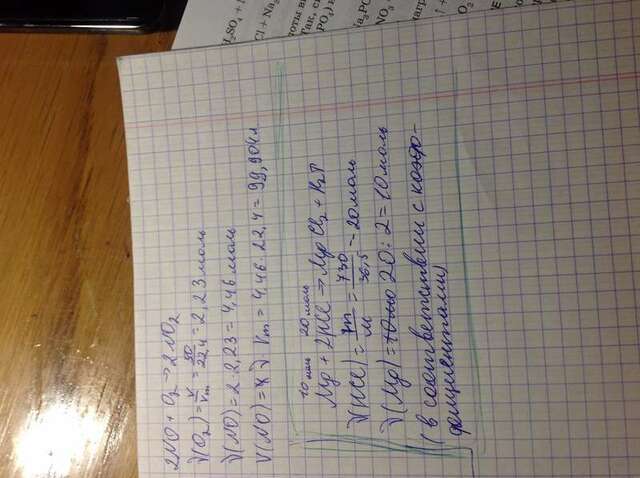 2NO + O₂ → 2NO₂
ν(O₂) = V/Vm = 50/22,4 = 2,23 моль
ν(NO) = 2·2,23 = 4,46 моль
V(NO) = ν·Vm = 4,46·22,4 = 99,904 л
10 моль 20 моль
Mg + 2HCl → MgCl₂ + H₂↑
ν(HCl) = m/M = 730/36,5 = 20 моль
ν(Mg) = 20 : 2 = 10 моль
(в соответствии с коэф-
фициентами)